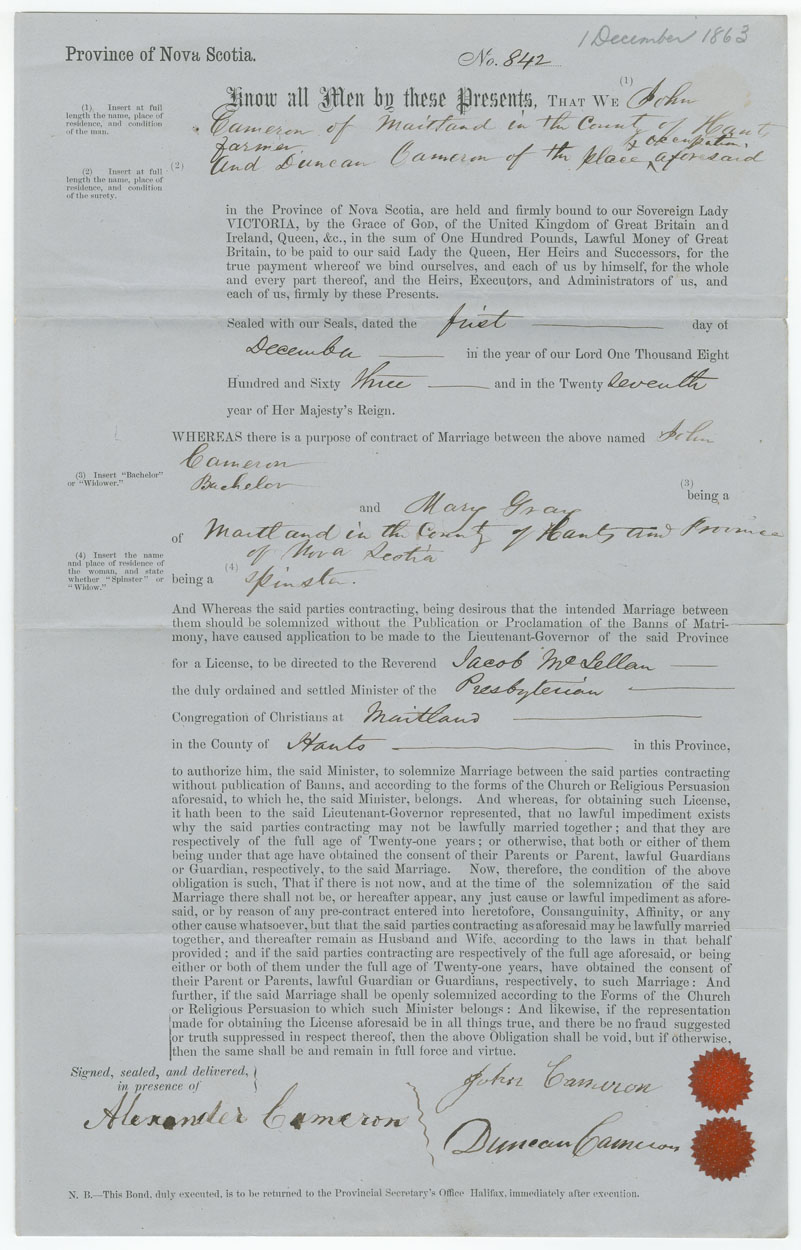 1 December 1863
Province of Nova Scotia.
No. 842
Know all Men by these Presents, THAT WE (1) John
(1). Insert at full
length the name, place of
residence, and condition
of the man.
Cameron of Maitland in the County of Hants
farmer
by occupation,
(2) And Duncan Cameron of the place aforesaid
(2). Insert at full
length the name, place of
residence, and condition
of the surety.
in the Province of Nova Scotia, are held and firmly bound to our Sovereign Lady
VICTORIA, by the Grace of GOD, of the United Kingdom of Great Britain and
Ireland, Queen, &c., in the sum of One Hundred Pounds, Lawful Money of Great
Britain, to be paid to our said Lady the Queen, Her Heirs and Successors, for the
true payment whereof we bind ourselves, and each of us by himself, for the whole
and every part thereof, and the Heirs, Executors, and Administrators of us, and
each of us, firmly by these Presents.
Sealed with our Seals, dated the first day of
December in the year of our Lord One Thousand Eight
Hundred and Sixty three and in the Twenty seventh
year of Her Majesty's Reign.
WHEREAS there is a purpose of contract of Marriage between the above named John
Cameron
(3) Insert "Bachelor"
or "Widower."
(3)
being a
Bachelor
and Mary Gray
of Maitland in the County of Hants and Province
of Nova Scotia
(4) Insert the name
and place of residence of
the woman, and state
whether "Spinster" or
"Widow."
being a (4) Spinster.
And Whereas the said parties contracting, being desirous that the intended Marriage between
them should be solemnized without the Publication or Proclamation of the Banns of Matri-
mony, have caused application to be made to the Lieutenant-Governor of the said Province
for a License, to be directed to the Reverend Jacob McLellan
the duly ordained and settled Minister of the Presbyterian
Congregation of Christians at Maitland
in the County of Hants in this Province,
to authorize him, the said Minister, to solemnize Marriage between the said parties contracting
without publication of Banns, and according to the forms of the Church or Religious Persuasion
aforesaid, to which he, the said Minister, belongs. And whereas, for obtaining such License,
it hath been to the said Lieutenant-Governor represented, that no lawful impediment exists
why the said parties contracting may not be lawfully married together; and that they are
respectively of the full age of Twenty-one years; or otherwise, that both or either of them
being under that age have obtained the consent of their Parents or Parent, lawful Guardians
or Guardian, respectively, to the said Marriage. Now, therefore, the condition of the above
obligation is such, That if there is not now, and at the time of the solemnization of the said
Marriage there shall not be, or hereafter appear, any just cause or lawful impediment as afore-
said, or by reason of any pre-contract entered into heretofore, Consanguinity, Affinity, or any
other cause whatsoever, but that the said parties contracting as aforesaid may be lawfully married
together, and thereafter remain as Husband and Wife, according to the laws in that behalf
provided; and if the said parties contracting are respectively of the full age aforesaid, or being
either or both of them under the full age of Twenty-one years, have obtained the consent of
their Parent or Parents, lawful Guardian or Guardians, respectively, to such Marriage: And
further, if the said Marriage shall be openly solemnized according to the Forms of the Church
or Religious Persuasion to which such Minister belongs: And likewise, if the representation
made for obtaining the License aforesaid be in all things true, and there be no fraud suggested
or truth suppressed in respect thereof, then the above Obligation shall be void, but if otherwise,
then the same shall be and remain in full force and virtue.
Signed, sealed, and delivered,
in presence of
John Cameron
Alexander Cameron
Duncan Cameron
N. B.—This Bond, duly executed, is to be returned to the Provincial Secretary's Office Halifax, immediately after execution.